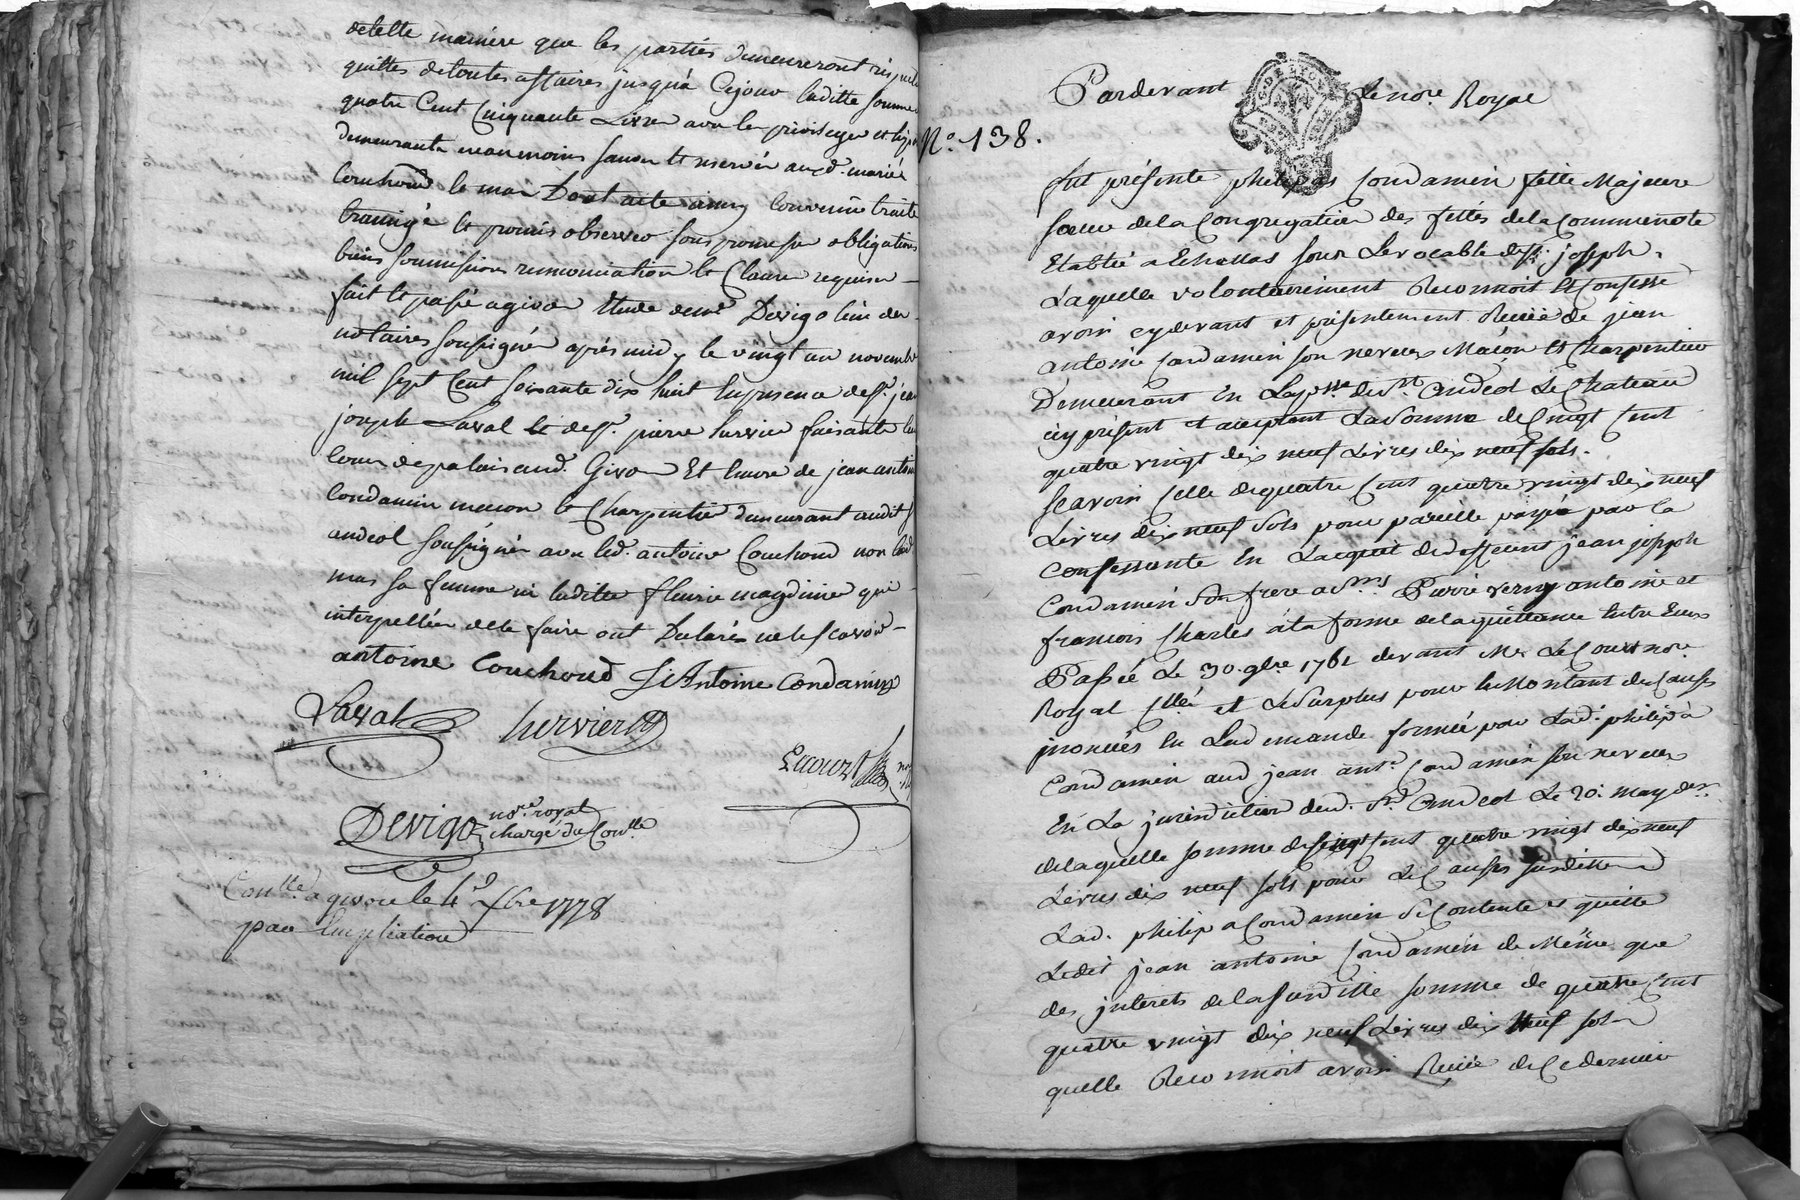 de telle maniere que les parties demeureront
quittes de toutes affaires jusqu'a Cejour laditte somme
quatre Cent Cinquante Livres avec les privileges et
demeurants neanmoins sauves et reservés auxd. mariés
Couchoud le mari Dont acte ainsy Convenu traité
transigé et promis observer sous promesse obligations
biens soumissions renonciation et Clause requise
fait et passé a givors Etude de me Devigo l'un des
notaires soussignés aprés midy le vingt un novembre
mil sept Cent soixante dix huit En presence de sr. jean
joseph Laval et de sr. pierre hervier
Cour de palais aud. Givors Et Encore de jean antoine
Condamin macon et Charpentier demeurant audit st
andeol soussignés avec led. antoine Couchoud non
mas sa femme ni laditte fleurie magdinier qui
interpellées de le faire ont Declarés ne le scavoir
antoine Couchoud Jt Antoine Condamin
Laval hervier
Lecourt
Devigo nore royal
chargé du Conlle
Conllé a givors le 4 xbre 1778
par Empliation
Pardevant Le nore Royal
No. 138.
fut présente philipa Condamin fille Majeure
soeur de la Congregation des filles de la Communoté
Etablie a Echallas sous Le vocable de st. joseph.
Laquelle volontairement Reconnoit et Confesse
avoir cy devant et présentement Reçüe de jean
antoine Condamin son neveux Maçon et Charpentier
Demeurant En La psse de st andeol Le Chateau
icy présent et aceptant La Somme de Cinq Cent
quatre vingt dix neuf Livres dix neuf sols.
scavoir Celle de quatre Cent quatre vingt dix neuf
Livres dix neuf sols pour pareille payée par la
confessante En Lacquit de deffeunt jean joseph
Condamin son frere a Srs Pierre verny antoine et
francois Charles a la forme de la quittance Entre Eux
Passée Le 30. 9bre 1761 devant Me LeCourt nore
Royal et Le Surplus pour le Montant des Causes
enoncées En La demande formée par Lad. philipa
Condamin aud jean ante Condamin son neveux
En La juridiction dud. St andeol Le 20. may der.
de laquelle somme de Cinq Cent quatre vingt dix neuf
Livres dix neuf sols pour Les Causes susdittes
Lad. philipa Condamin se Contente et quitte
Ledit jean antoine Condamin de Même que
des interets de la susditte somme de quatre Cent
quatre vingt dix neuf Livres dix Neuf sols
quelle Reconnoit avoir Reçüe de Ce dernier